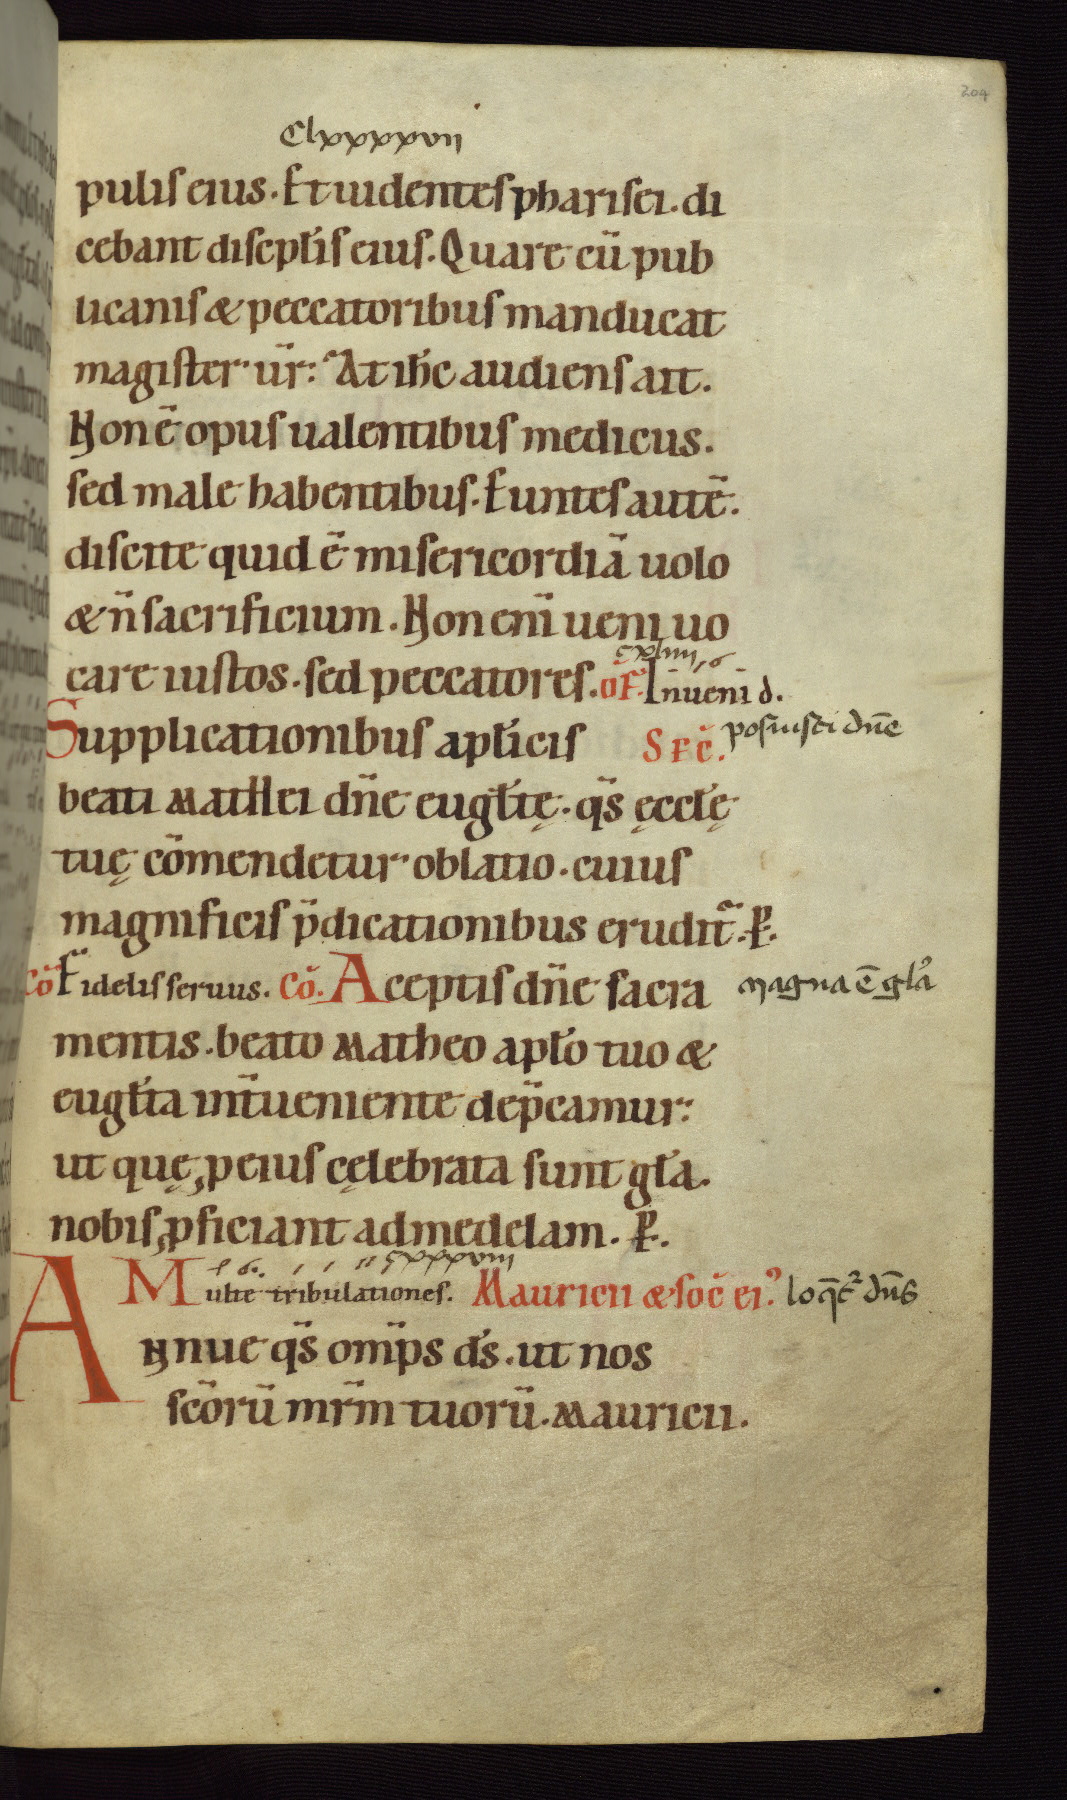 204
Clxxxxvii
pulis eius. Et uidentes pharisei. di
cebant discipl̄is eius. Quare cū pub
licanis & peccatoribus manducat
magister ūr: At ih̄c audiens ait.
Non ē opus ualentibus medicus.
sed male habentibus. Euntes autē.
discite quid ē misericordiā uolo
& n̄ sacrificium. Non enī ueni uo
care iustos. sed peccatores. oF̄. Inueni d.
cxliiii
Supplicationibus apl̄icis SEC̄. posuisti dn̄e
beati Mathei dn̄e eugl̄tę. qs̄ ęccl̄ę
tuę cōmendetur oblatio. cuius
magnificis p̄dicationibus erudit̄. P.
Cō Fidelis seruus. Cō. Aceptis dn̄e sacra magna ē gl̄a
mentis. beato Matheo apl̄o tuo &
eugl̄ta int̄ueniente dep̄camur:
ut quę, p eius cęlebrata sunt gl̄a.
nobis, pficiant ad medelam. P.
Multe tribulationes. Mauricii & soc̄ ei⁹ loq̄t̄ dn̄s
Annue qs̄ omp̄s ds̄. ut nos
sc̄orū mr̄m tuorū. Mauricii.